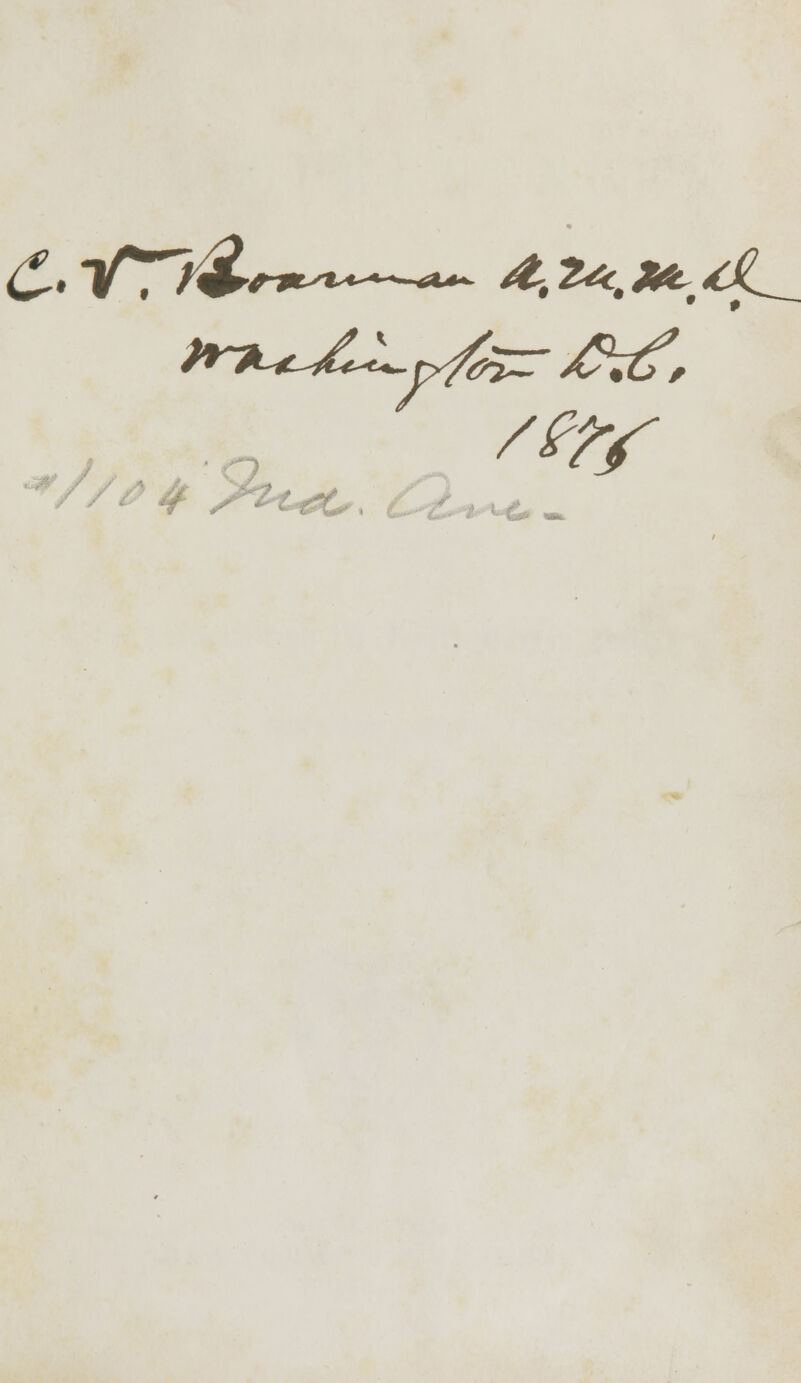 C. V. Boarman A.M. M.D.
Washington D.C.
1876
#1104 Ind. Ave-